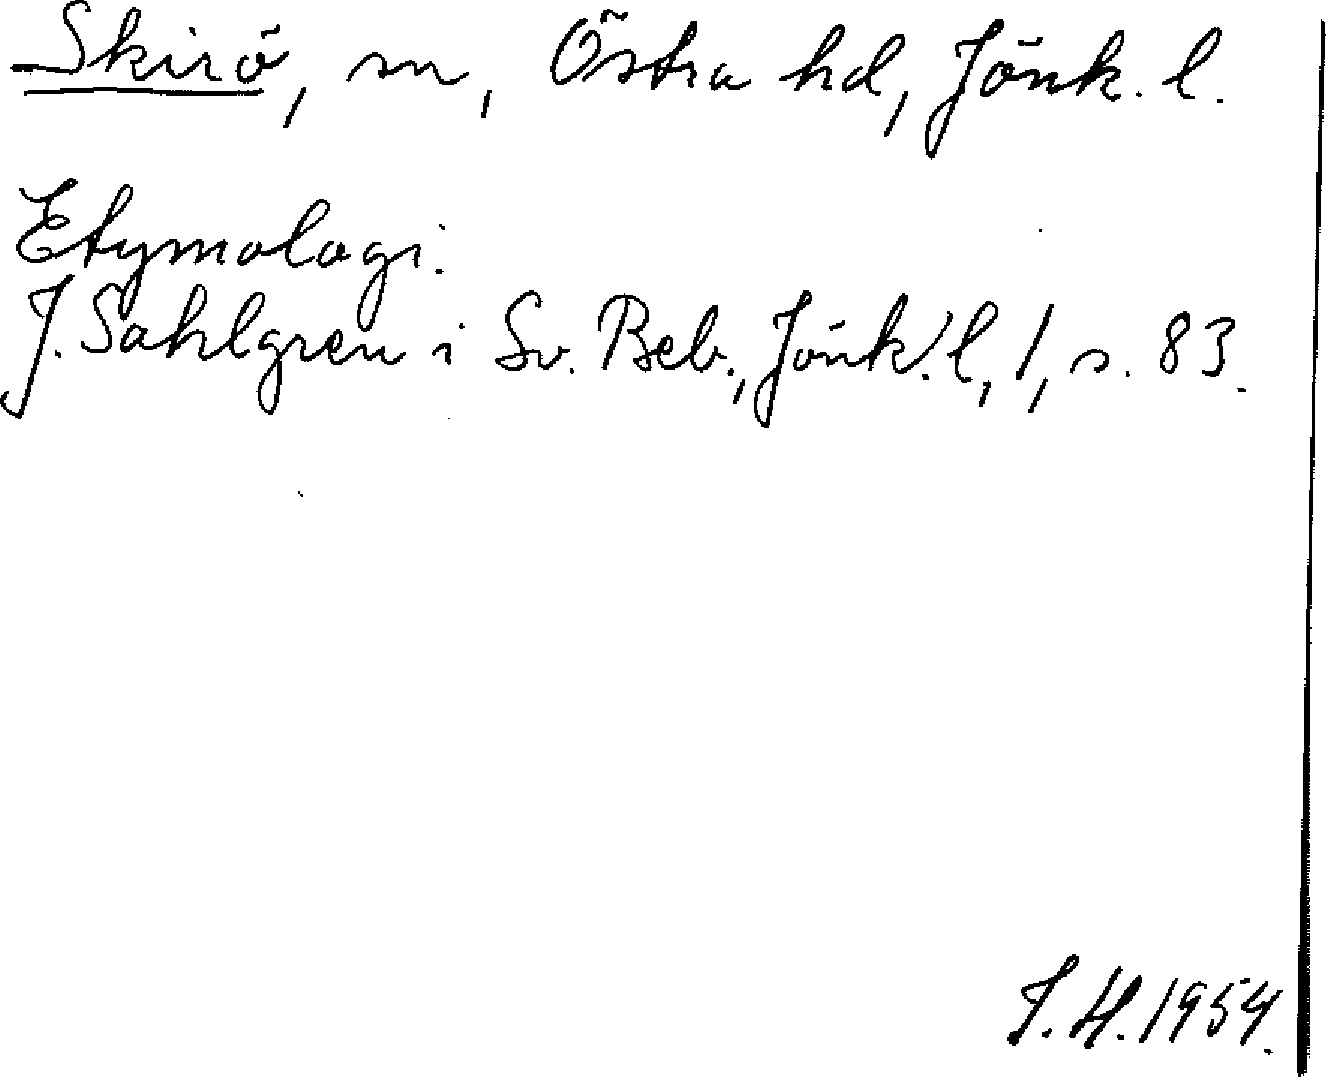 Skirö, sn, Östra hd, Jönk. l.
Etymologi.
J. Sahlgren i Sv. Beb., Jönk. l, 1, s. 83.
J. H. 1954.